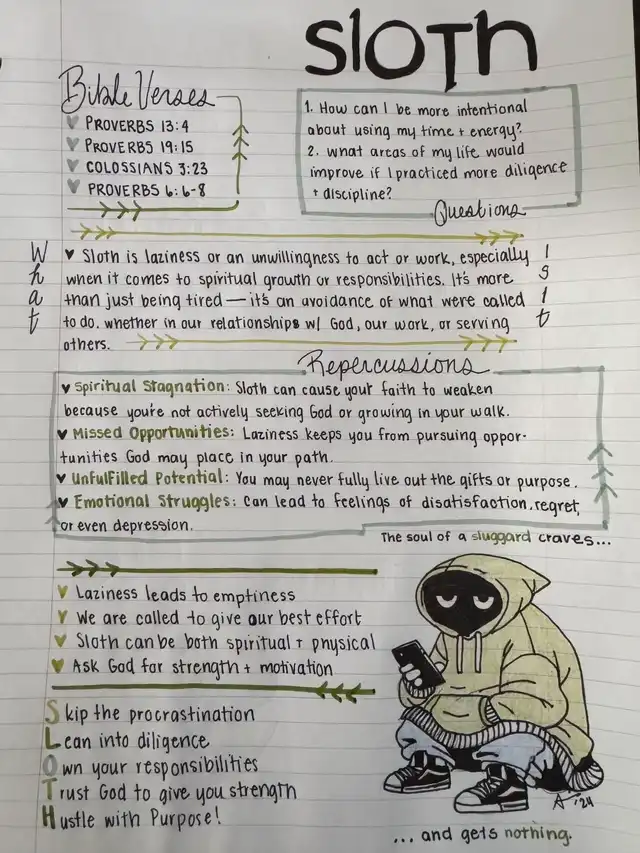 SLOTH
Bible Verses
PROVERBS 13:4
PROVERBS 19:15
COLOSSIANS 3:23
PROVERBS 6:6-8
1. How can I be more intentional
about using my time + energy?
2. what areas of my life would
improve if I practiced more diligence
+ discipline?
Questions
What
Is it
♥ Sloth is laziness or an unwillingness to act or work, especially
when it comes to spiritual growth or responsibilities. It's more
than just being tired — it's an avoidance of what were called
to do. whether in our relationships w/ God, our work, or serving
others.
Repercussions
♥ Spiritual Stagnation: Sloth can cause your faith to weaken
because you're not actively seeking God or growing in your walk.
♥ Missed Opportunities: Laziness keeps you from pursuing oppor-
tunities God may place in your path.
♥ Unfulfilled Potential: You may never fully live out the gifts or purpose.
♥ Emotional Struggles: Can lead to feelings of disatisfaction, regret,
or even depression.
The soul of a sluggard craves...
Laziness leads to emptiness
We are called to give our best effort
Sloth can be both spiritual + physical
Ask God for strength + motivation
Skip the procrastination
Lean into diligence
Own your responsibilities
Trust God to give you strength
Hustle with Purpose!
... and gets nothing.